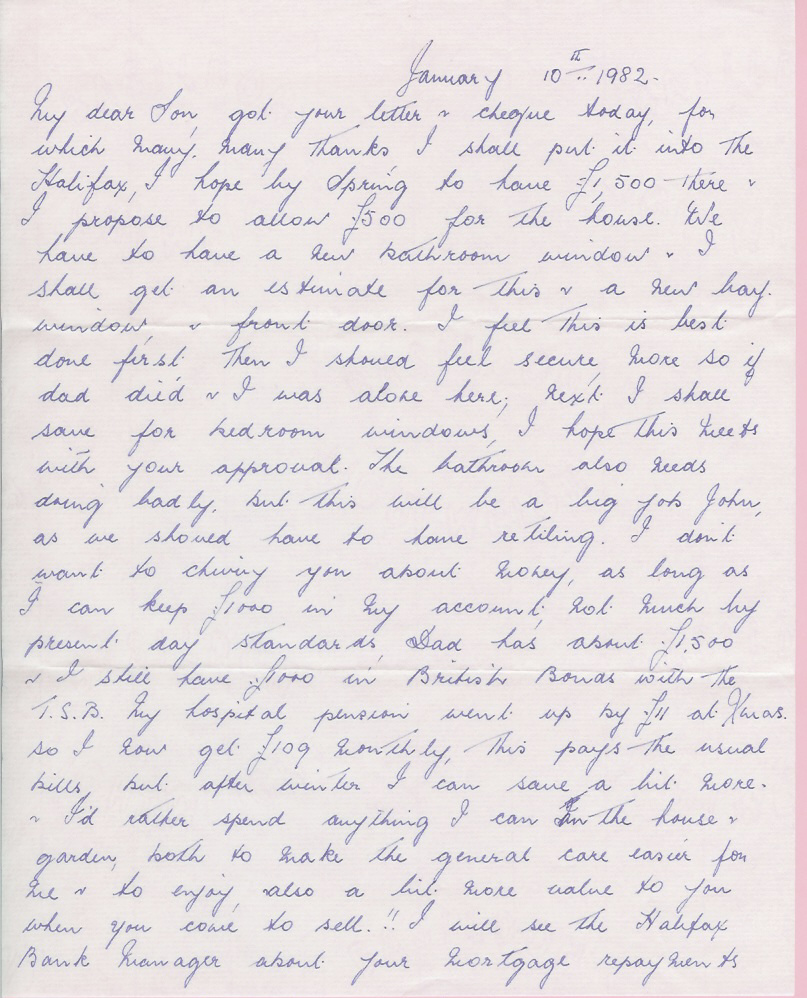 January 10th 1982.
My dear Son, got your letter & cheque today, for
which many, many thanks, I shall put it into the
Halifax, I hope by Spring to have £1,500 there &
I propose to allow £500 for the house. We
have to have a new bathroom window & I
shall get an estimate for this & a new bay.
window, & front door. I feel this is best
done first. Then I should feel secure, more so if
dad died & I was alone here; next I shall
save for bedroom windows, I hope this meets
with your approval. The bathroom also needs
doing badly, but this will be a big job John,
as we should have to have retiling. I don't
want to chivvy you about money, as long as
I can keep £1000 in my account, not much by
present day standards, Dad has about £1,500
& I still have £1000 in British Bonds with the
T.S.B. My hospital pension went up by £11 at Xmas.
so I now get £109 monthly, this pays the usual
bills, but after winter I can save a bit more.
& I'd rather spend anything I can in the house &
garden, both to make the general care easier for
me & to enjoy, also a bit more value to you
when you come to sell.!! I will see the Halifax
Bank Manager about your mortgage repayments